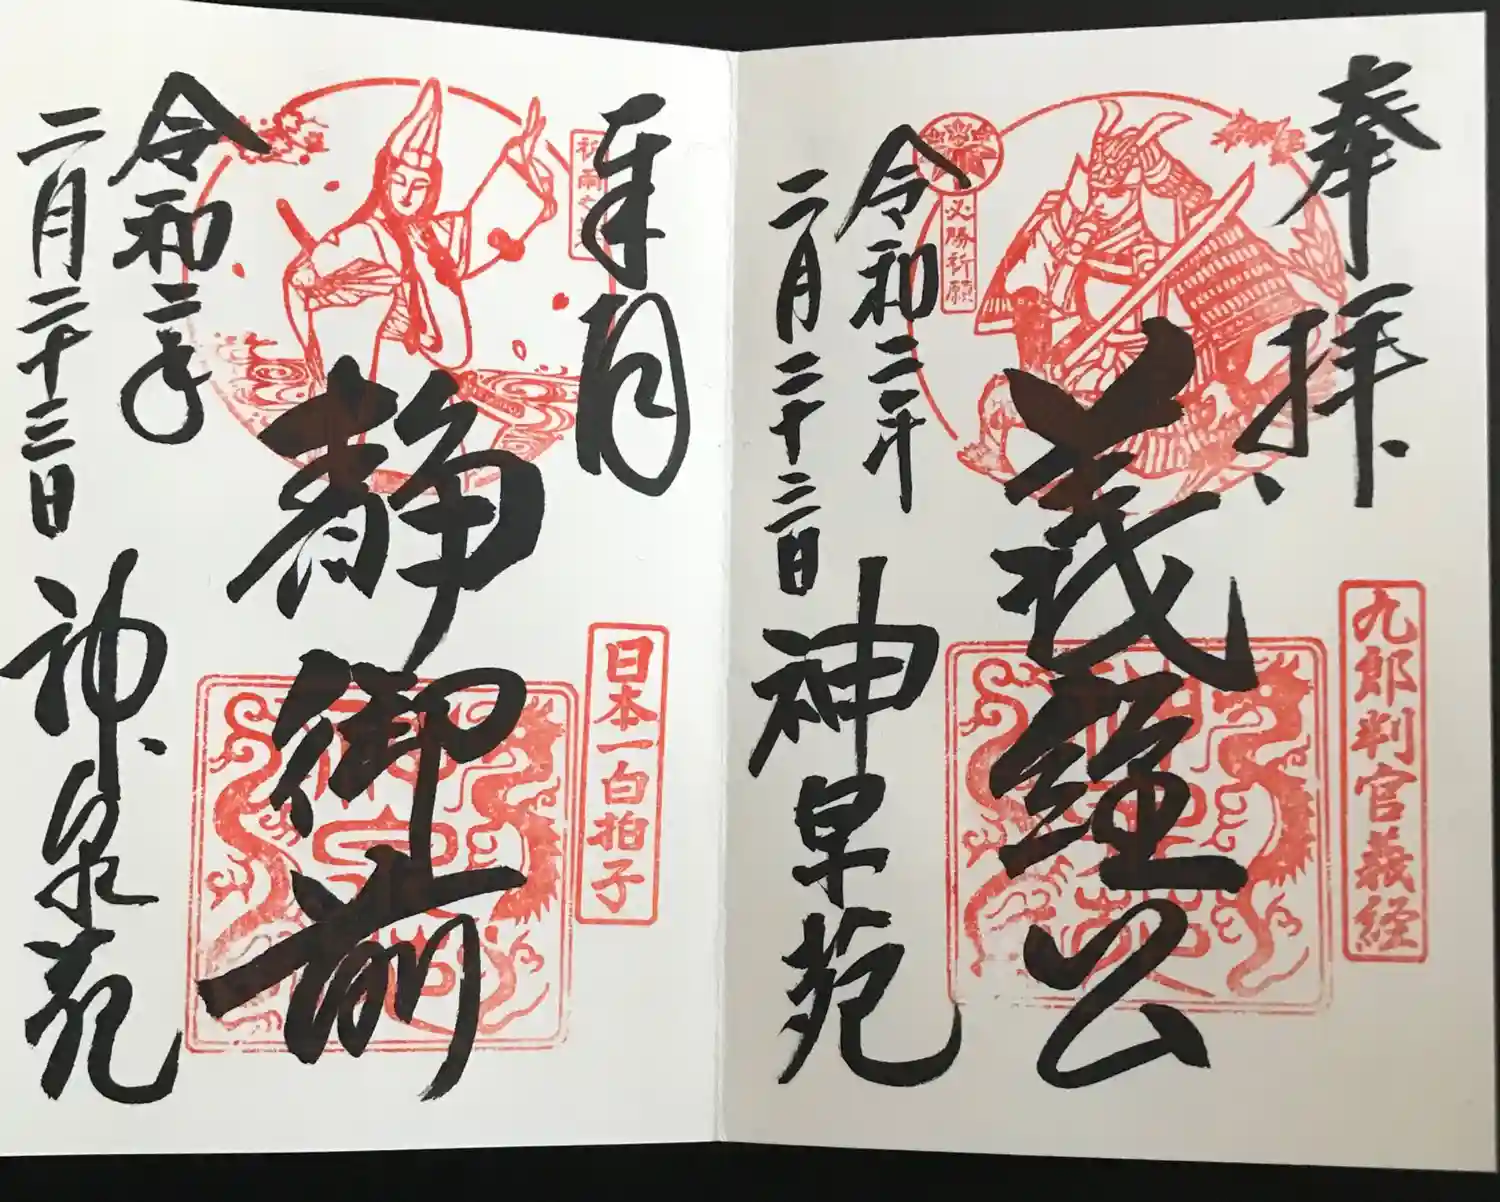 奉拝
九郎判官義経
義経公
必勝祈願
令和二年
二月二十三日
神泉苑
拝
日本一白拍子
静御前
令和二年
二月二十三日
神泉苑